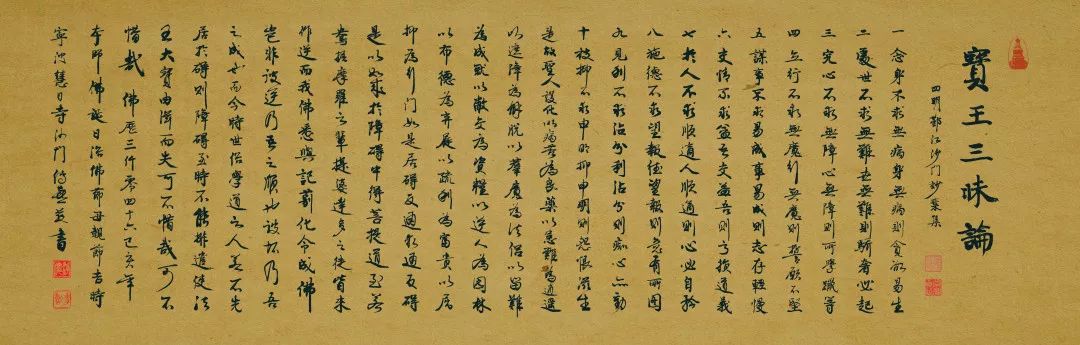 寶王三昧論
四明鄞江沙门妙葉集
一念身不求無病身無病則貪欲易生
二處世不求無難世無難則驕奢必起
三究心不求無障心無障則所學躐等
四立行不求無魔行無魔則誓願不堅
五謀事不求易成事易成則志存輕慢
六交情不求益吾交益吾則亏損道義
七於人不求順適人順適則心必自矜
八施德不求望報德望報則意有所图
九見利不求沾分利沾分則痴心亦動
十被抑不求申明抑申明則怨恨滋生
是故聖人設化以病苦為良藥以患難為逍遥
以遮障為解脱以羣魔為法侣以留難
為成就以敝交為資糧以逆人為园林
以布德為弃屣以疏利為富貴以屈
抑為行門如是居碍反通求通反碍
是以如來於障碍中得菩提道至若
鴦掘摩羅之輩提婆達多之徒皆来
作逆而我佛悉與記莂化令成佛
豈非彼逆乃吾之順也彼坏乃吾
之成也而今時世俗學道之人若不先
居於碍則障碍至時不能排遣使法
王大寶由兹而失可不惜哉可不
惜哉 佛歷三仟零四十六己亥年
本師佛誕日浴佛節母親節吉時
寧波慧日寺沙門並書